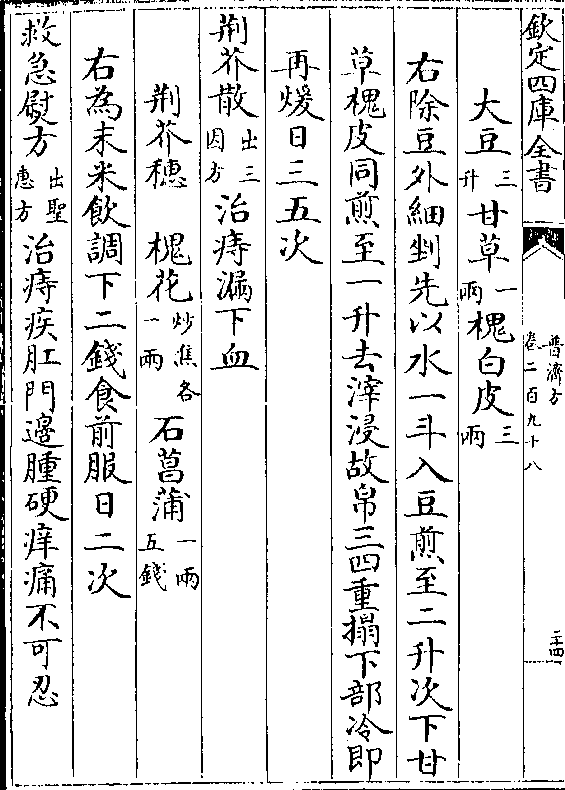 欽定四庫全書
普濟方
卷二百九十八
二十四
大豆三升甘草一兩槐白皮三兩
右除豆外細剉先以水一斗入豆煎至二升次下甘
草槐皮同煎至一升去滓浸故帛三四重搨下部冷即
再煖日三五次
荆芥散出三因方治痔漏下血
荆芥穗 槐花炒焦各一兩 石菖蒲一兩五錢
右為末米飲調下二錢食前服日二次
救急熨方出聖惠方治痔疾肛門邊腫硬痒痛不可忍